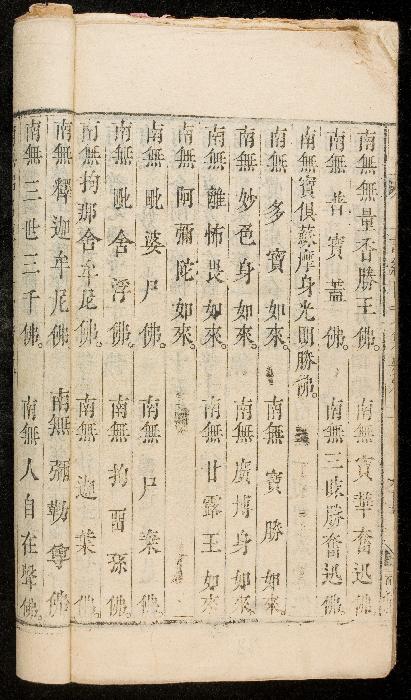 南無無量香勝王佛。南無寶華奮迅佛
南無普寶蓋佛。南無三昧勝奮迅佛
南無寶俱蘇摩身光明勝佛。
南無多寶如來。南無寶勝如來。
南無妙色身如來。南無廣博身如來。
南無離怖畏如來。南無甘露王如來
南無阿彌陀如來。
南無毗婆尸佛。南無尸棄佛。
南無毗舍浮佛。南無拘畱孫佛。
南無拘那舍牟尼佛。南無迦葉佛。
南無釋迦牟尼佛。南無彌勒尊佛
南無三世三千佛。南無人自在聲佛。